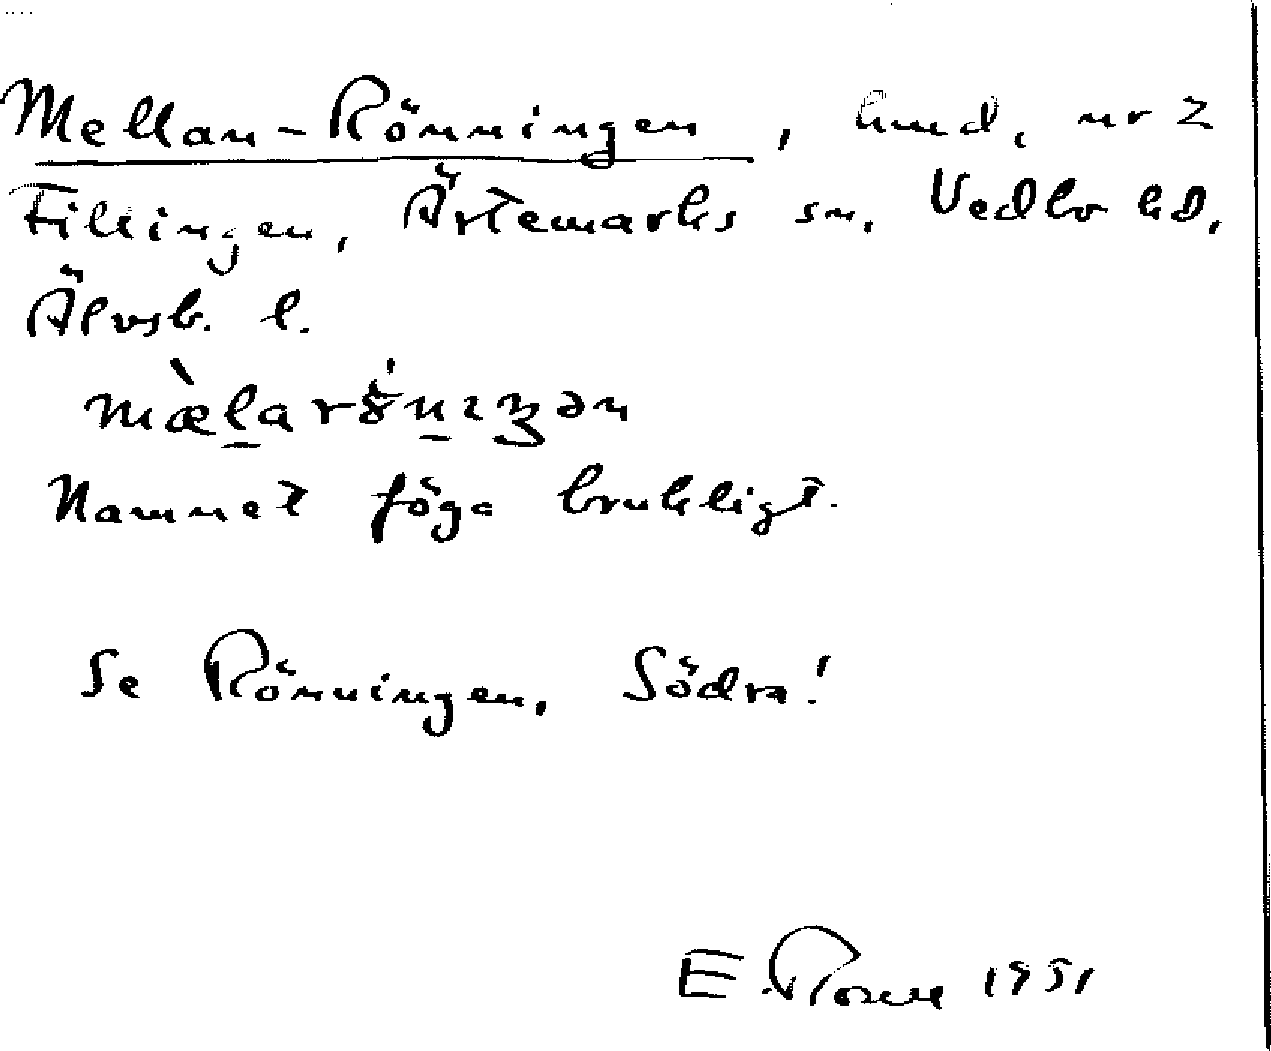 Mellan-Rönningen, hmd, nr 2
Fillingen, Ärtemarks sn, Vedbo hd,
Älvsb. l.
Namnet föga brukligt.
Se Rönningen, Södra!
E 1951